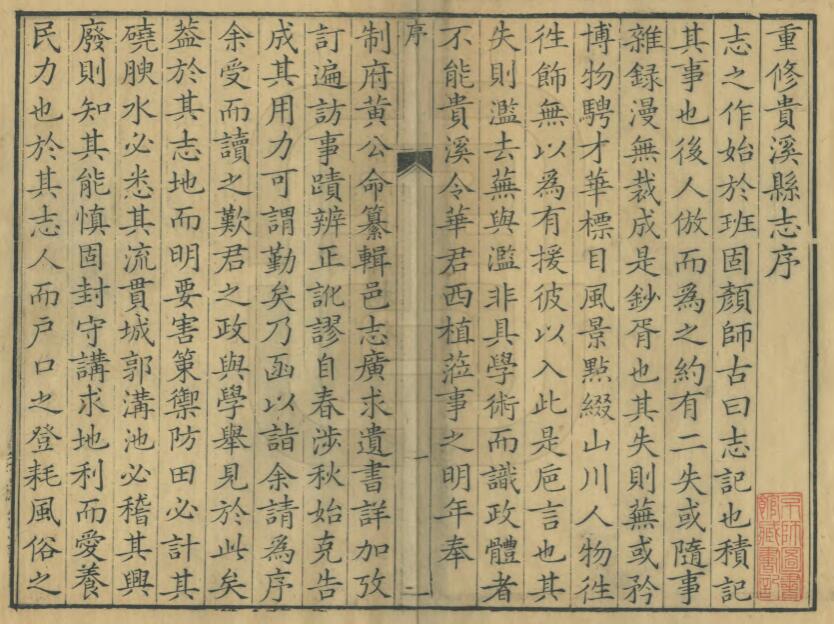 重修貴溪縣志序
志之作始於班固顏師古曰志記也積記
其事也後人倣而爲之約有二失或隨事
雜録漫無裁成是鈔胥也其失則蕪或矜
博物騁才華標目風景點綴山川人物徃
徃飾無以爲有援彼以入此是巵言也其
失則濫去蕪與濫非具學術而識政體者
不能貴溪令華君西植蒞事之明年奉
序
一
制府黄公命纂輯邑志廣求遺書詳加攷
訂遍訪事蹟辨正訛謬自春涉秋始克告
成其用力可謂勤矣乃函以詣余請為序
余受而讀之歎君之政與學舉見於此矣
葢於其志地而明要害策禦防田必計其
磽腴水必悉其流貫城郭溝池必稽其興
廢則知其能慎固封守講求地利而愛養
民力也於其志人而戸口之登耗風俗之